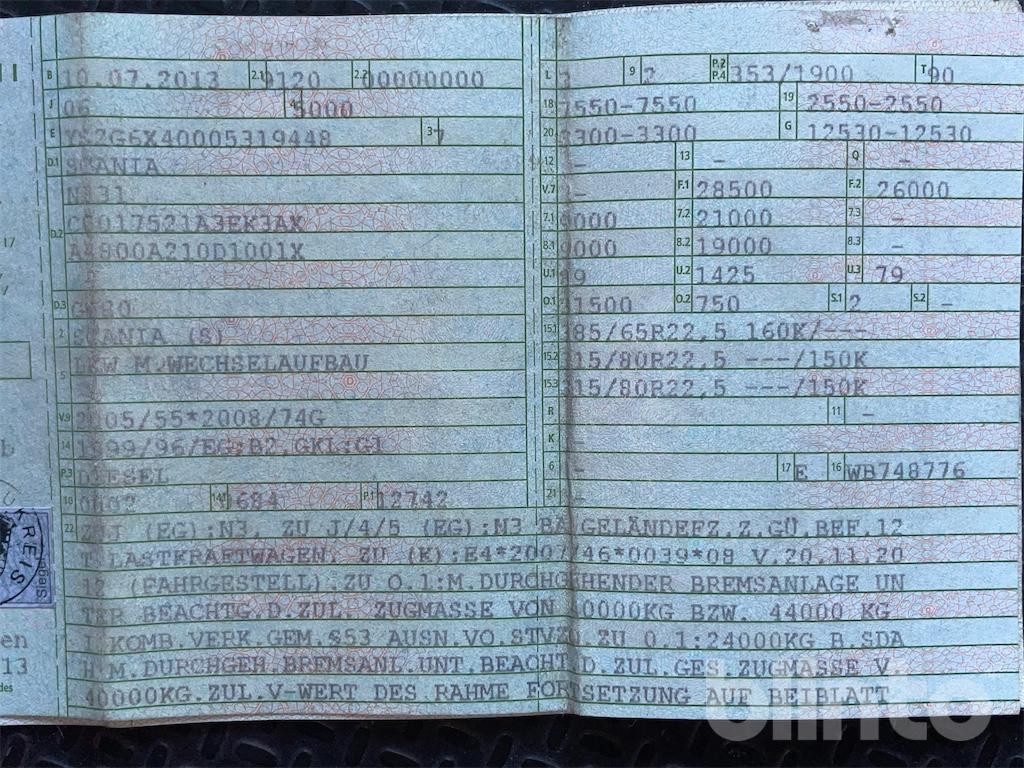 B 10.07.2013 2.1 9120 2.2 00000000
J 06 4 5000
E YS2G6X40005319448 3 7
D.1 SCANIA
D.2 N331
CG017521A3EK3AX
A4800A210D1001X
D.3 G480
2 SCANIA (S)
5 LKW M.WECHSELAUFBAU
V.9 2005/55*2008/74G
14 1999/96/EG;B2,GKL:G1
P.3 DIESEL
10 0002 14.1 0684 P.1 12742
L 3 9 2 P.2 P.4 353/1900 T 90
18 7550-7550 19 2550-2550
20 3300-3300 G 12530-12530
12 - 13 - Q -
V.7 - F.1 28500 F.2 26000
7.1 9000 7.2 21000 7.3 -
8.1 9000 8.2 19000 8.3 -
U.1 89 U.2 1425 U.3 79
O.1 31500 O.2 750 S.1 2 S.2 -
15.1 385/65R22,5 160K/---
15.2 315/80R22,5 ---/150K
15.3 315/80R22,5 ---/150K
R 11 -
K -
6 - 17 E 16 WB748776
21 -
22 ZUJ (EG):N3, ZU J/4/5 (EG):N3 BA GELÄNDEFZ.Z.GÜ.BEF.12
T LASTKRAFTWAGEN, ZU (K):E4*2007/46*0039*08 V.20.11.20
12 (FAHRGESTELL) ZU O.1:M.DURCHGEHENDER BREMSANLAGE UN
TER BEACHTG.D.ZUL. ZUGMASSE VON 40000KG BZW. 44000 KG
I.KOMB.VERK.GEM.§53 AUSN.VO.STVZO.ZU O.1:24000KG B.SDA
H M.DURCHGEH.BREMSANL.UNT.BEACHT.D.ZUL.GES.ZUGMASSE V.
40000KG.ZUL.V-WERT DES RAHME FORTSETZUNG AUF BEIBLATT
17
KREIS
en
13
blinto